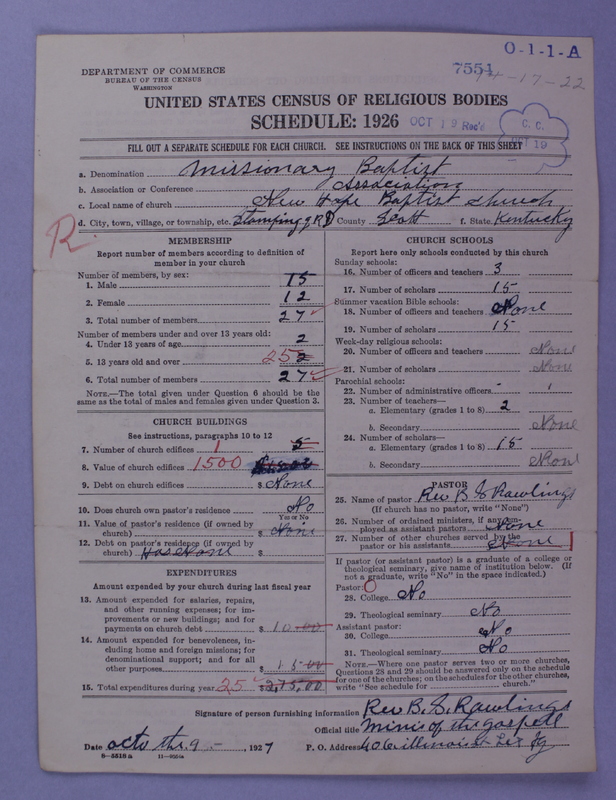 O-1-1-A
7554 4-17-22
DEPARTMENT OF COMMERCE
BUREAU OF THE CENSUS
WASHINGTON
UNITED STATES CENSUS OF RELIGIOUS BODIES
SCHEDULE: 1926
OCT 19 Rec'd
C. C.
OCT 19
FILL OUT A SEPARATE SCHEDULE FOR EACH CHURCH. SEE INSTRUCTIONS ON THE BACK OF THIS SHEET
a. Denomination Missionary Baptist
b. Association or Conference Association
c. Local name of church New Hope Baptist Church
d. City, town, village, or township, etc. Stamping g RD County Scott f. State Kentucky
R.
MEMBERSHIP
Report number of members according to definition of
member in your church
Number of members, by sex:
1. Male 15
2. Female 12
3. Total number of members 27
Number of members under and over 13 years old:
4. Under 13 years of age 2
5. 13 years old and over 25
6. Total number of members 27
NOTE.—The total given under Question 6 should be the
same as the total of males and females given under Question 3.
CHURCH BUILDINGS
See instructions, paragraphs 10 to 12
7. Number of church edifices 1 5
8. Value of church edifices 1500
9. Debt on church edifices $ None
10. Does church own pastor's residence? No
Yes or No
11. Value of pastor's residence (if owned by
church) $ None
12. Debt on pastor's residence (if owned by
church) Has None $
EXPENDITURES
Amount expended by your church during last fiscal year
13. Amount expended for salaries, repairs,
and other running expenses; for im-
provements or new buildings; and for
payments on church debt $ 10.00
14. Amount expended for benevolences, in-
cluding home and foreign missions; for
denominational support; and for all
other purposes $ 15.00
15. Total expenditures during year 25 $275.00
CHURCH SCHOOLS
Report here only schools conducted by this church
Sunday schools:
16. Number of officers and teachers 3
17. Number of scholars 15
Summer vacation Bible schools:
18. Number of officers and teachers None
19. Number of scholars 15
Week-day religious schools:
20. Number of officers and teachers None
21. Number of scholars None
Parochial schools:
22. Number of administrative officers
23. Number of teachers—
a. Elementary (grades 1 to 8) 2
b. Secondary None
24. Number of scholars—
a. Elementary (grades 1 to 8) 15
b. Secondary None
PASTOR
25. Name of pastor Rev B S Rawlings
(If church has no pastor, write "None")
26. Number of ordained ministers, if any, em-
ployed as assistant pastors None
27. Number of other churches served by the
pastor or his assistants None
If pastor (or assistant pastor) is a graduate of a college or
theological seminary, give name of institution below. (If
not a graduate, write "No" in the space indicated.)
Pastor:
28. College No
29. Theological seminary No
Assistant pastor:
30. College No
31. Theological seminary No
NOTE.—Where one pastor serves two or more churches,
Questions 28 and 29 should be answered only on the schedule
for one of the churches; on the schedules for the other churches,
write "See schedule for church."
Signature of person furnishing information Rev B. S. Rawlings
Official title Minis of the gospell
Date octo the 9, 1927 P. O. Address 406 illinois st Lex Ky
8—5518a 11—9554a